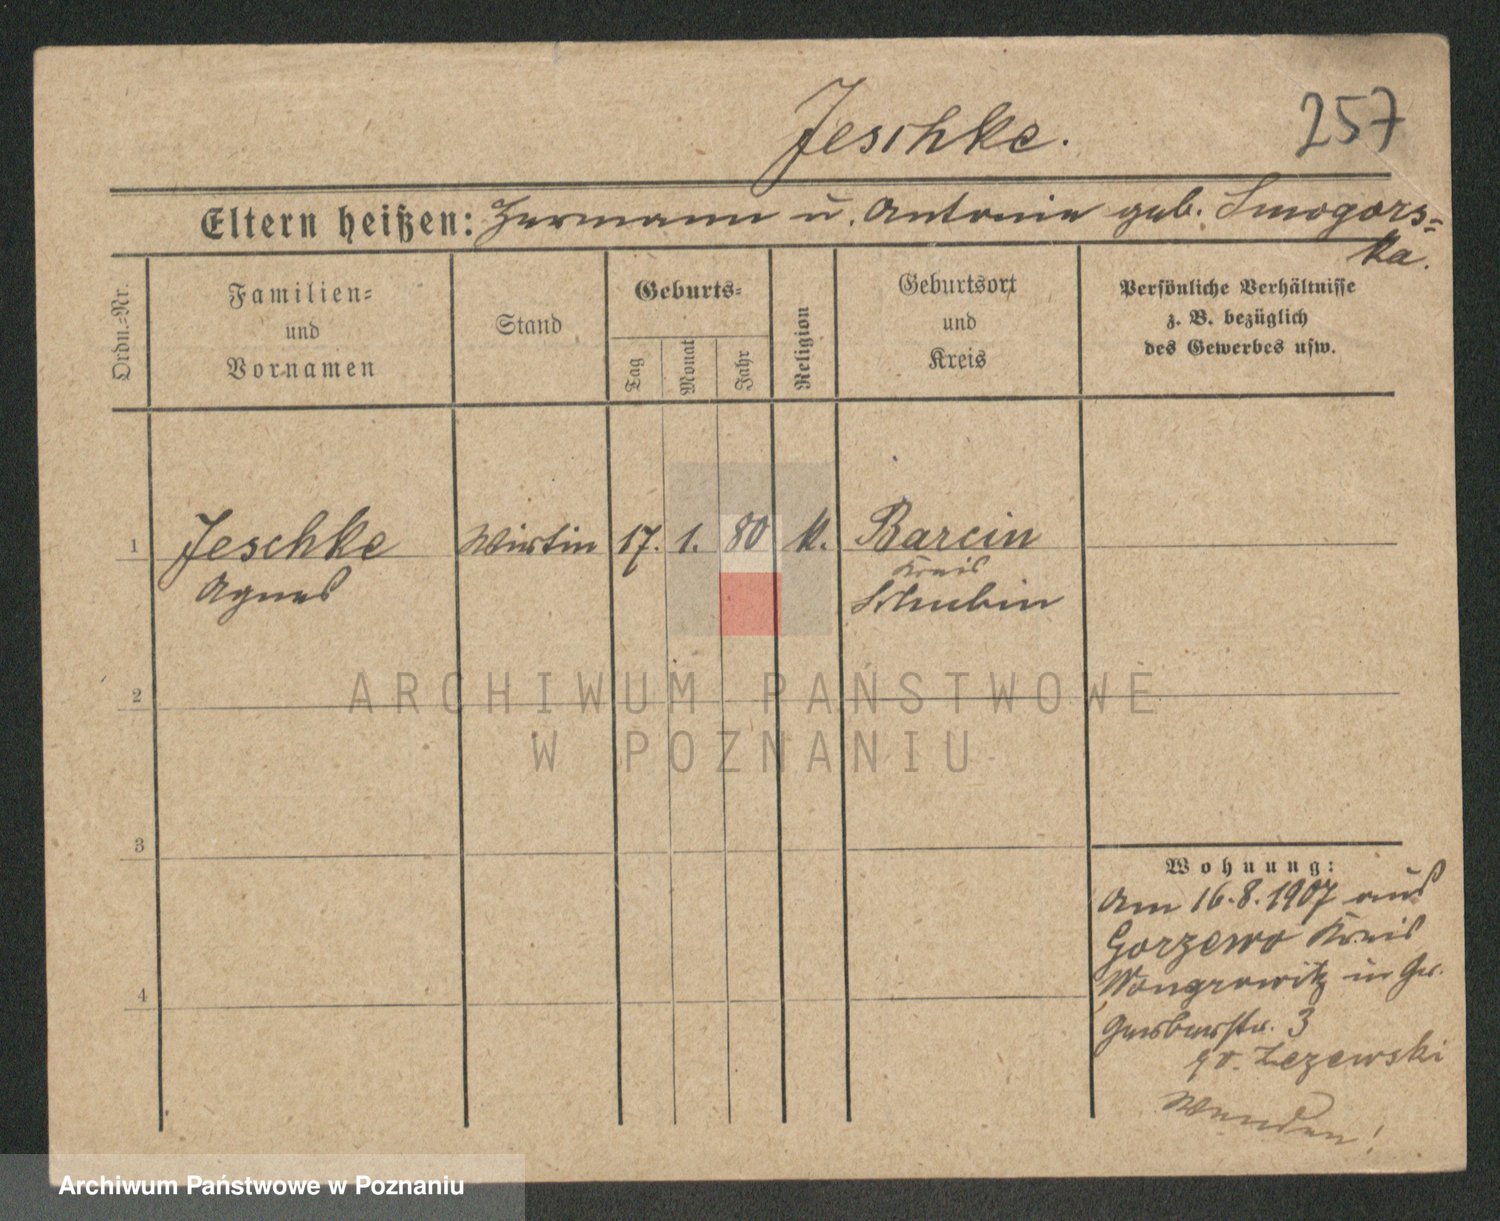 Jeschke.
257
Eltern heißen: Hermann u. Antonie geb. Smogors=
ka.
Ordn.=Nr.
Familien=
und
Vornamen
Stand
Geburts=
Tag
Monat
Jahr
Religion
Geburtsort
und
Kreis
Persönliche Verhältnisse
z. B. bezüglich
des Gewerbes usw.
1
Jeschke
Agnes
Wirtin
17.
1.
80
k.
Barcin
Kreis
Schubin
2
ARCHIWUM PAŃSTWOWE
W POZNANIU
3
4
Wohnung:
Am 16.8.1907 aus
Gorzewo Kreis
Wongrowitz in Gr.
Gerberstr. 3
Lezewski
Wenden!
Archiwum Państwowe w Poznaniu